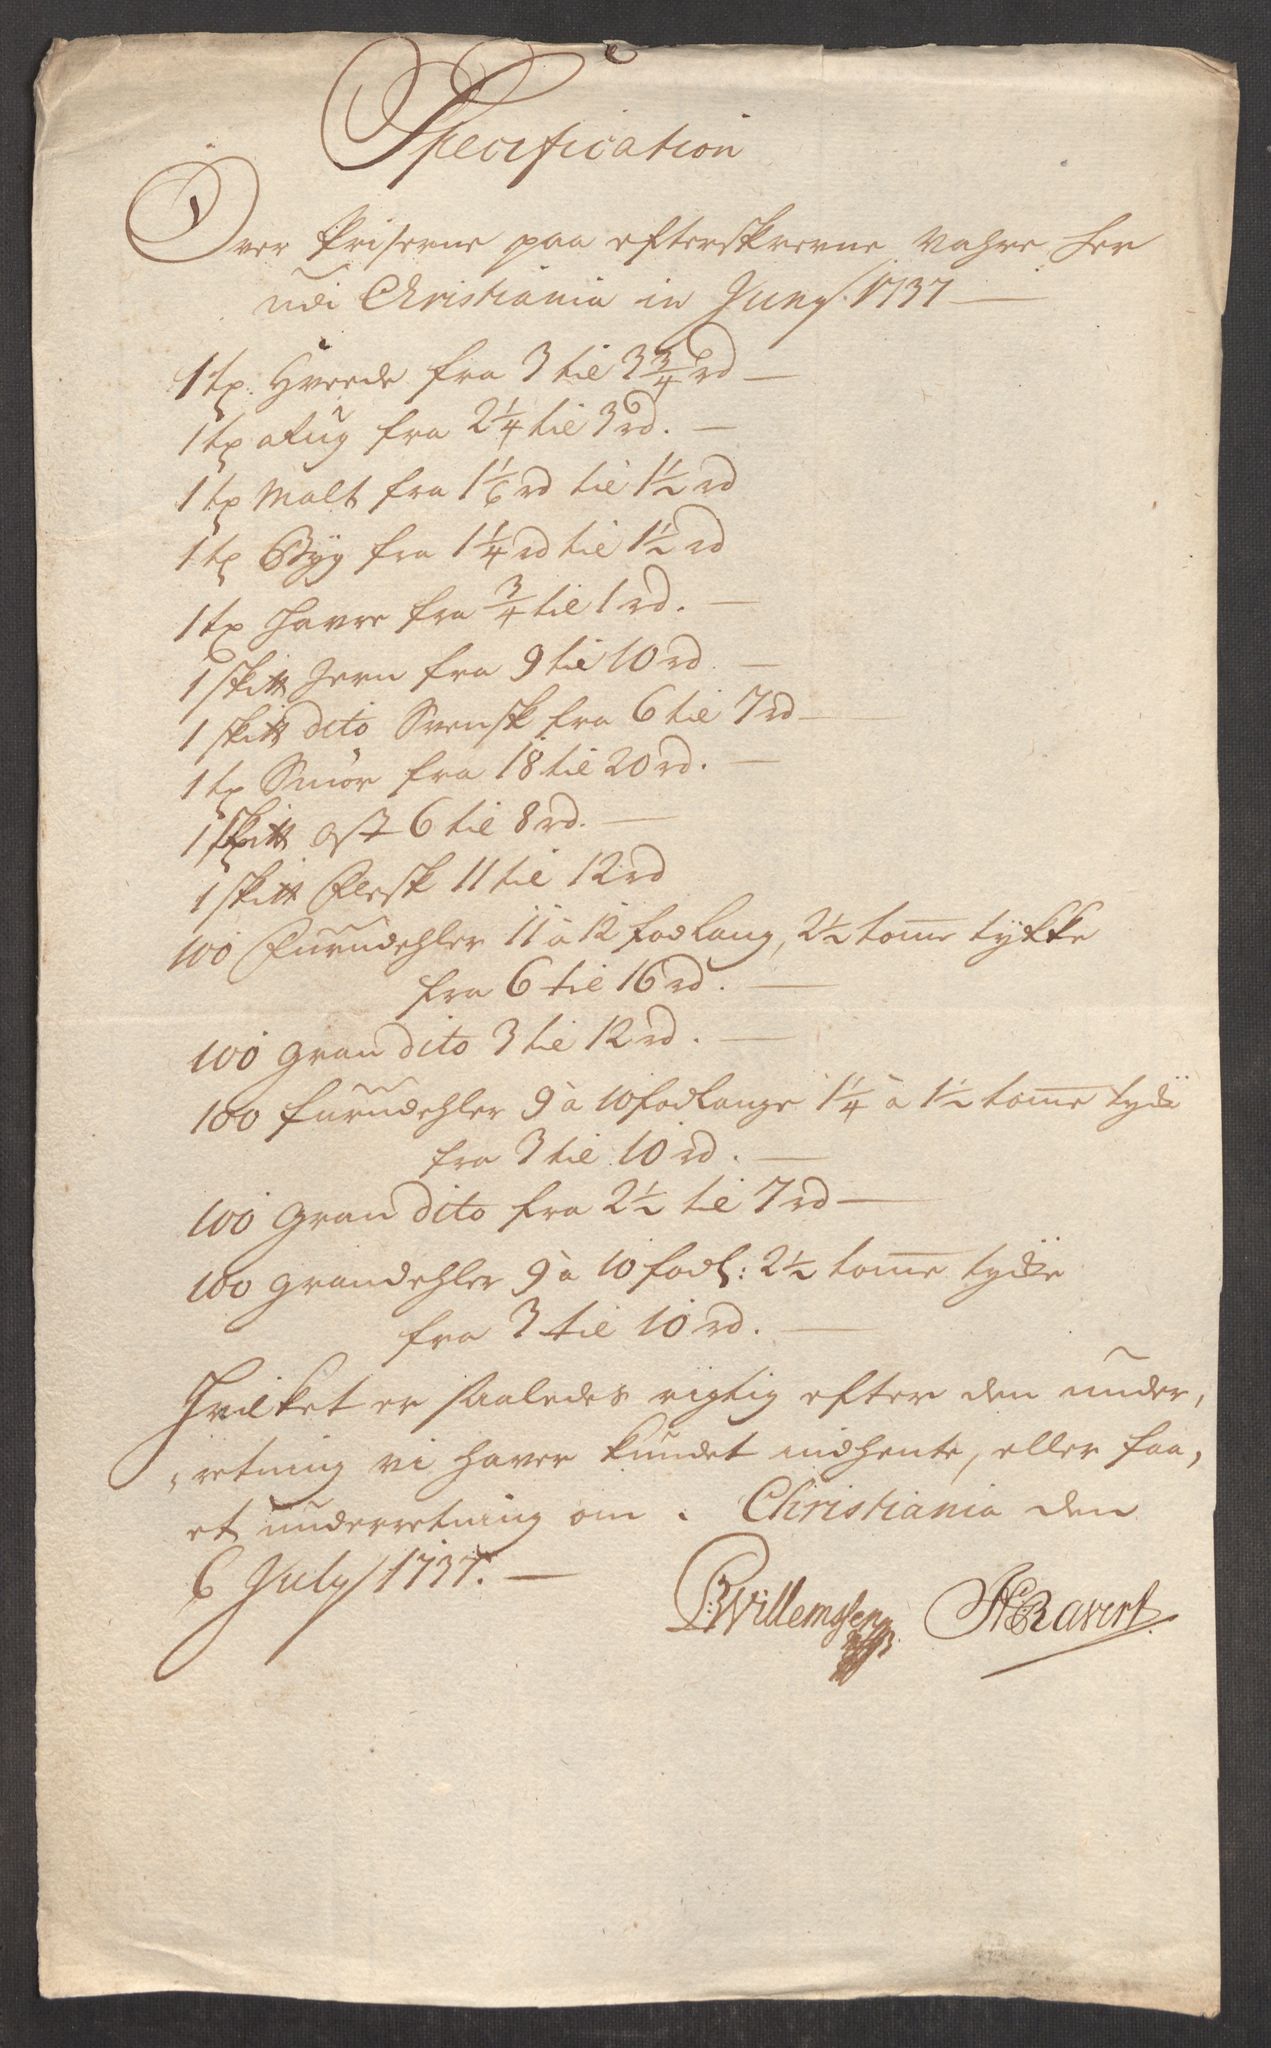 Specification
Over Priserne paa efterskrevne Vahre her
udi Christiania in Juny 1737
1 tø: Hveede fra 3 til 3 3/4 rd
1 tø Rug fra 2 1/4 til 3 rd.
1 tø Malt fra 1 1/6 rd til 1 1/2 rd
1 tø Byg fra 1 1/4 rd til 1 1/2 rd
1 tø Havre fra 3/4 til 1 rd.
1 skitt Jern fra 9 til 10 rd
1 skitt dito Svensk fra 6 til 7 rd
1 tø Smör fra 18 til 20 rd.
1 skitt Ost 6 til 8 rd.
1 skitt Flesk 11 til 12 rd
100 Furudehler 11 à 12 fodlang, 2 1/2 tome tykke
fra 6 til 16 rd.
100 Gran dito 3 til 12 rd.
100 furudehler 9 à 10 fodlange 1 1/4 à 1 1/2 tome
fra 3 til 10 rd.
100 Gran dito fra 2 1/2 til 7 rd
100 grandehler 9 à 10 fodl: 2 1/2 tome tycke
fra 3 til 10 rd.
Hvilket er saaledes rigtig efter den under,
,retning vi haver kundet indhente, eller faa,
et underretning om. Christiania den
6 July 1737.
Willemsen Ravert